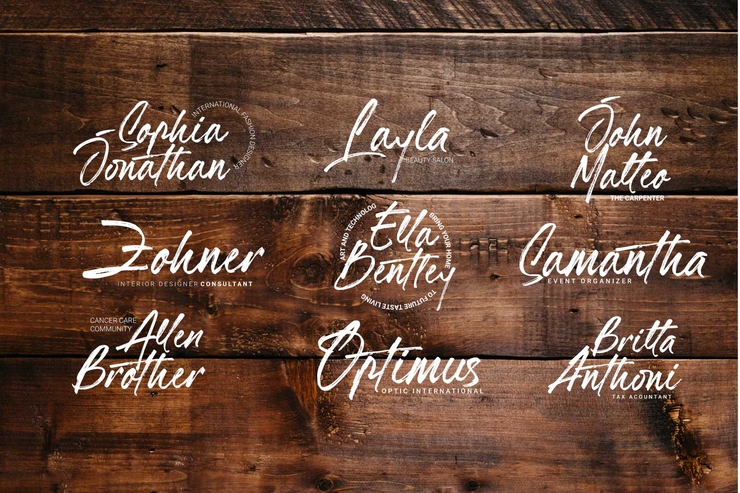 Sophia
Jonathan
INTERNATIONAL FASHION DESIGNER
Layla
BEAUTY SALON
John
Matteo
THE CARPENTER
Zohner
INTERIOR DESIGNER CONSULTANT
ART AND TECHNOLOG
BRING YOUR HOME
TO FUTURE TASTE LIVING
Ella
Bentley
Samantha
EVENT ORGANIZER
CANCER CARE
COMMUNITY
Allen
Brother
Optimus
OPTIC INTERNATIONAL
Britta
Anthoni
TAX ACOUNTANT